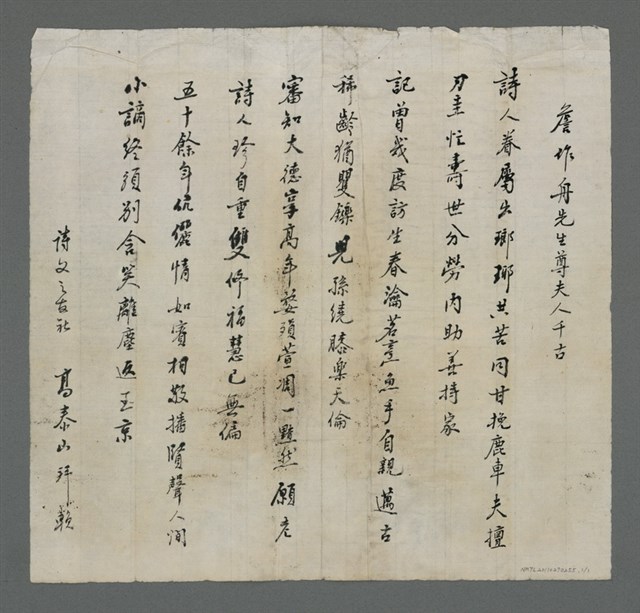 詹作舟先生尊夫人千古
詩人眷屬出瑯琊共苦同甘挽鹿車夫擅
刀圭忙壽世分勞內助善持家
記曾幾度訪生春瀹茗烹魚手自親邁古
稀齡猶矍鑠兒孫繞膝樂天倫
審知大德享高年萱凋一黯然願君
詩人珍自重雙修福慧已無偏
五十餘年伉儷情如賓相敬播賢聲人間
小謫終須別含笑離塵返玉京
詩文之友社 高泰山拜輓